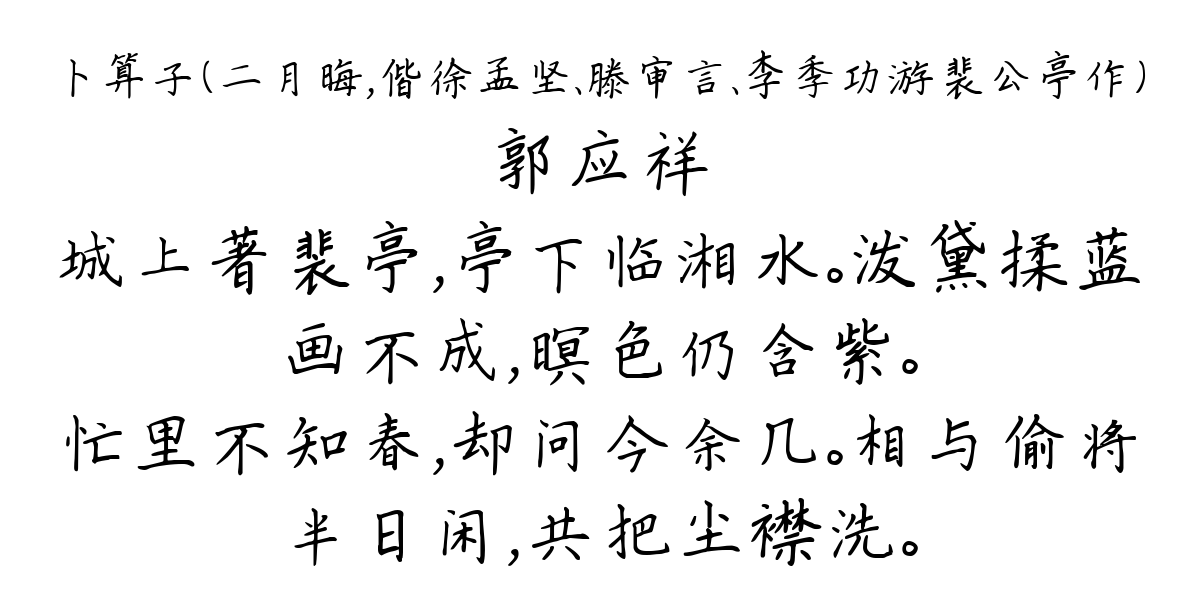 卜算子(二月晦,偕徐孟坚、滕审言、李季功游裴公亭作)
郭应祥
城上著裴亭,亭下临湘水。泼黛揉蓝
画不成,暝色仍含紫。
忙里不知春,却问今余几。相与偷将
半日闲,共把尘襟洗。